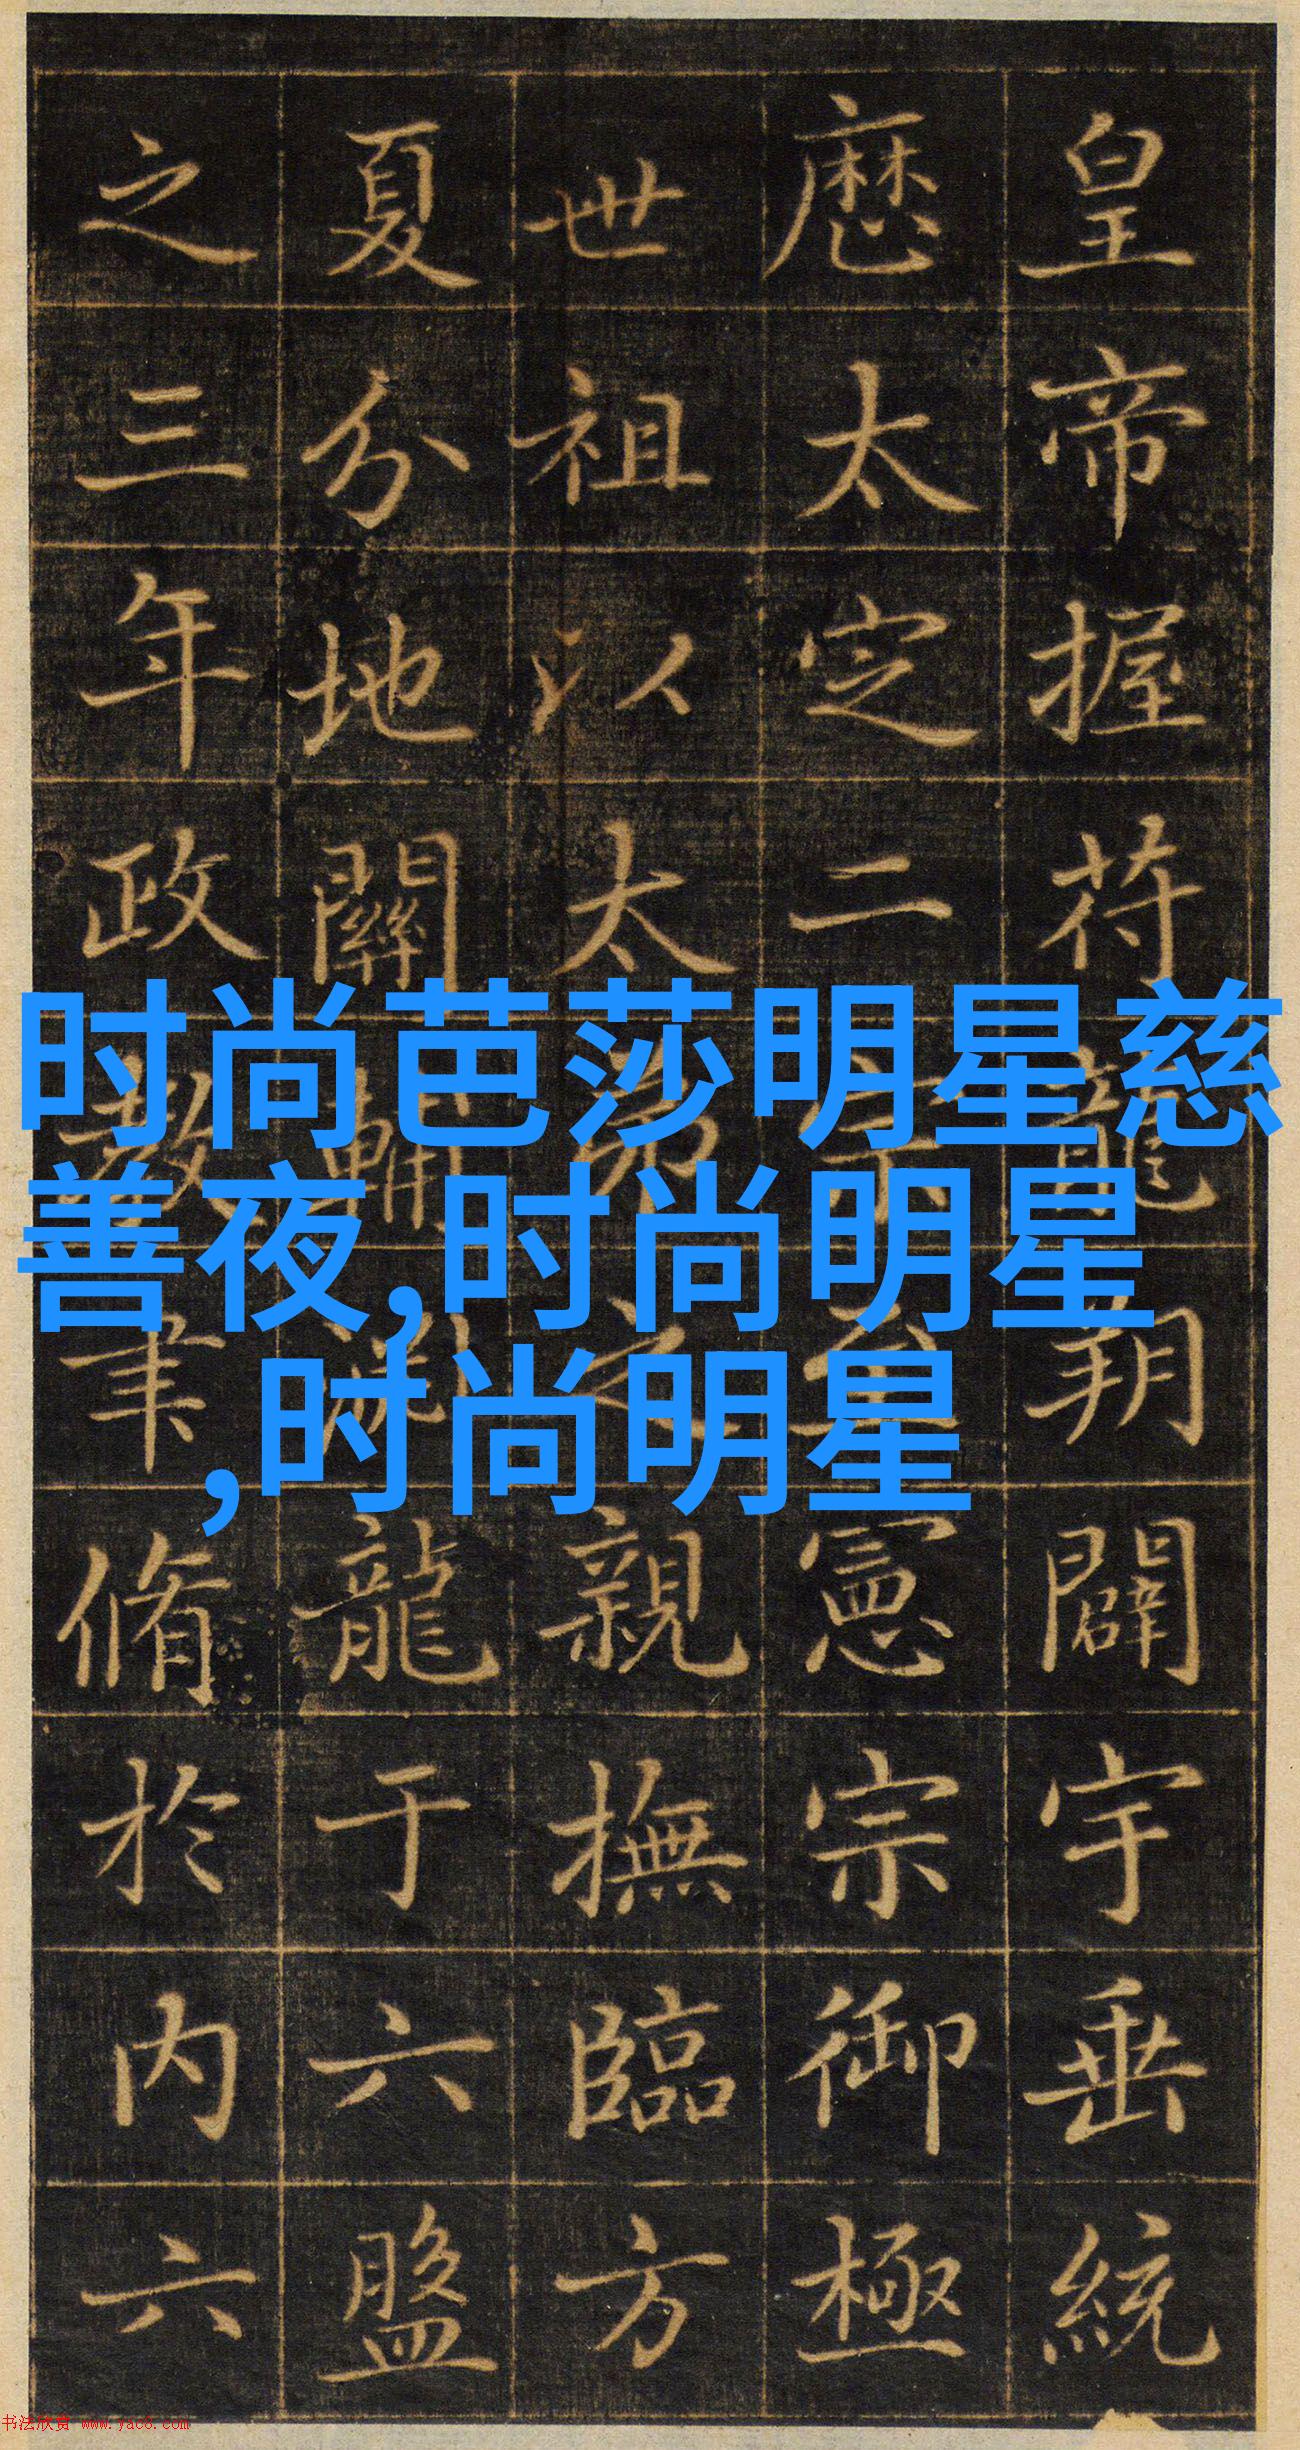 时尚芭莎明星慈
善夜,时尚明星
,时尚明星
皇帝握符龍朔闢宇垂統
歴太定二宗至憲宗御極
世祖以太弟之親撫臨方
夏分地關輔龍于六盤
之三年政教聿脩於内六
书法欣赏 www.yac8.com